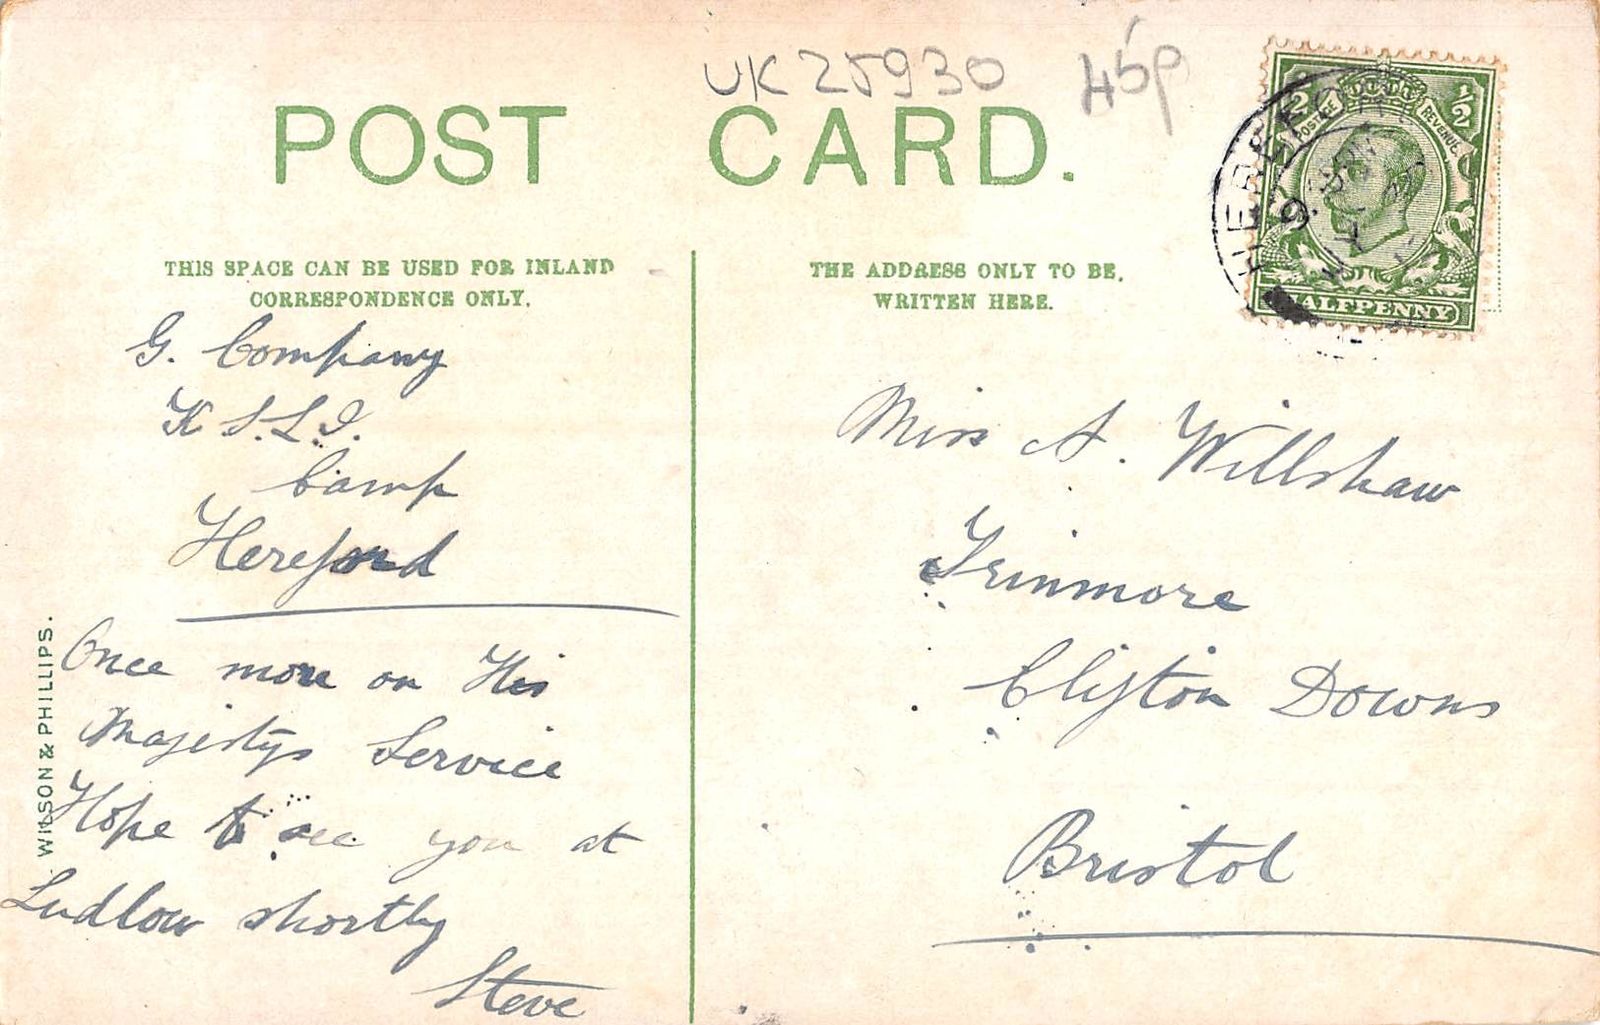 UK 25930 45p
POST CARD.
THIS SPACE CAN BE USED FOR INLAND
CORRESPONDENCE ONLY.
THE ADDRESS ONLY TO BE
WRITTEN HERE.
G. Company
K S.L.I.
Camp
Hereford
Once more on His
Majestys Service
Hope to see you at
Ludlow shortly
Steve
WILSON & PHILLIPS.
Miss A. Willshaw
Trinmore
Clifton Downs
Bristol
HEREFORD
POSTAGE
REVENUE
1/2
HALFPENNY